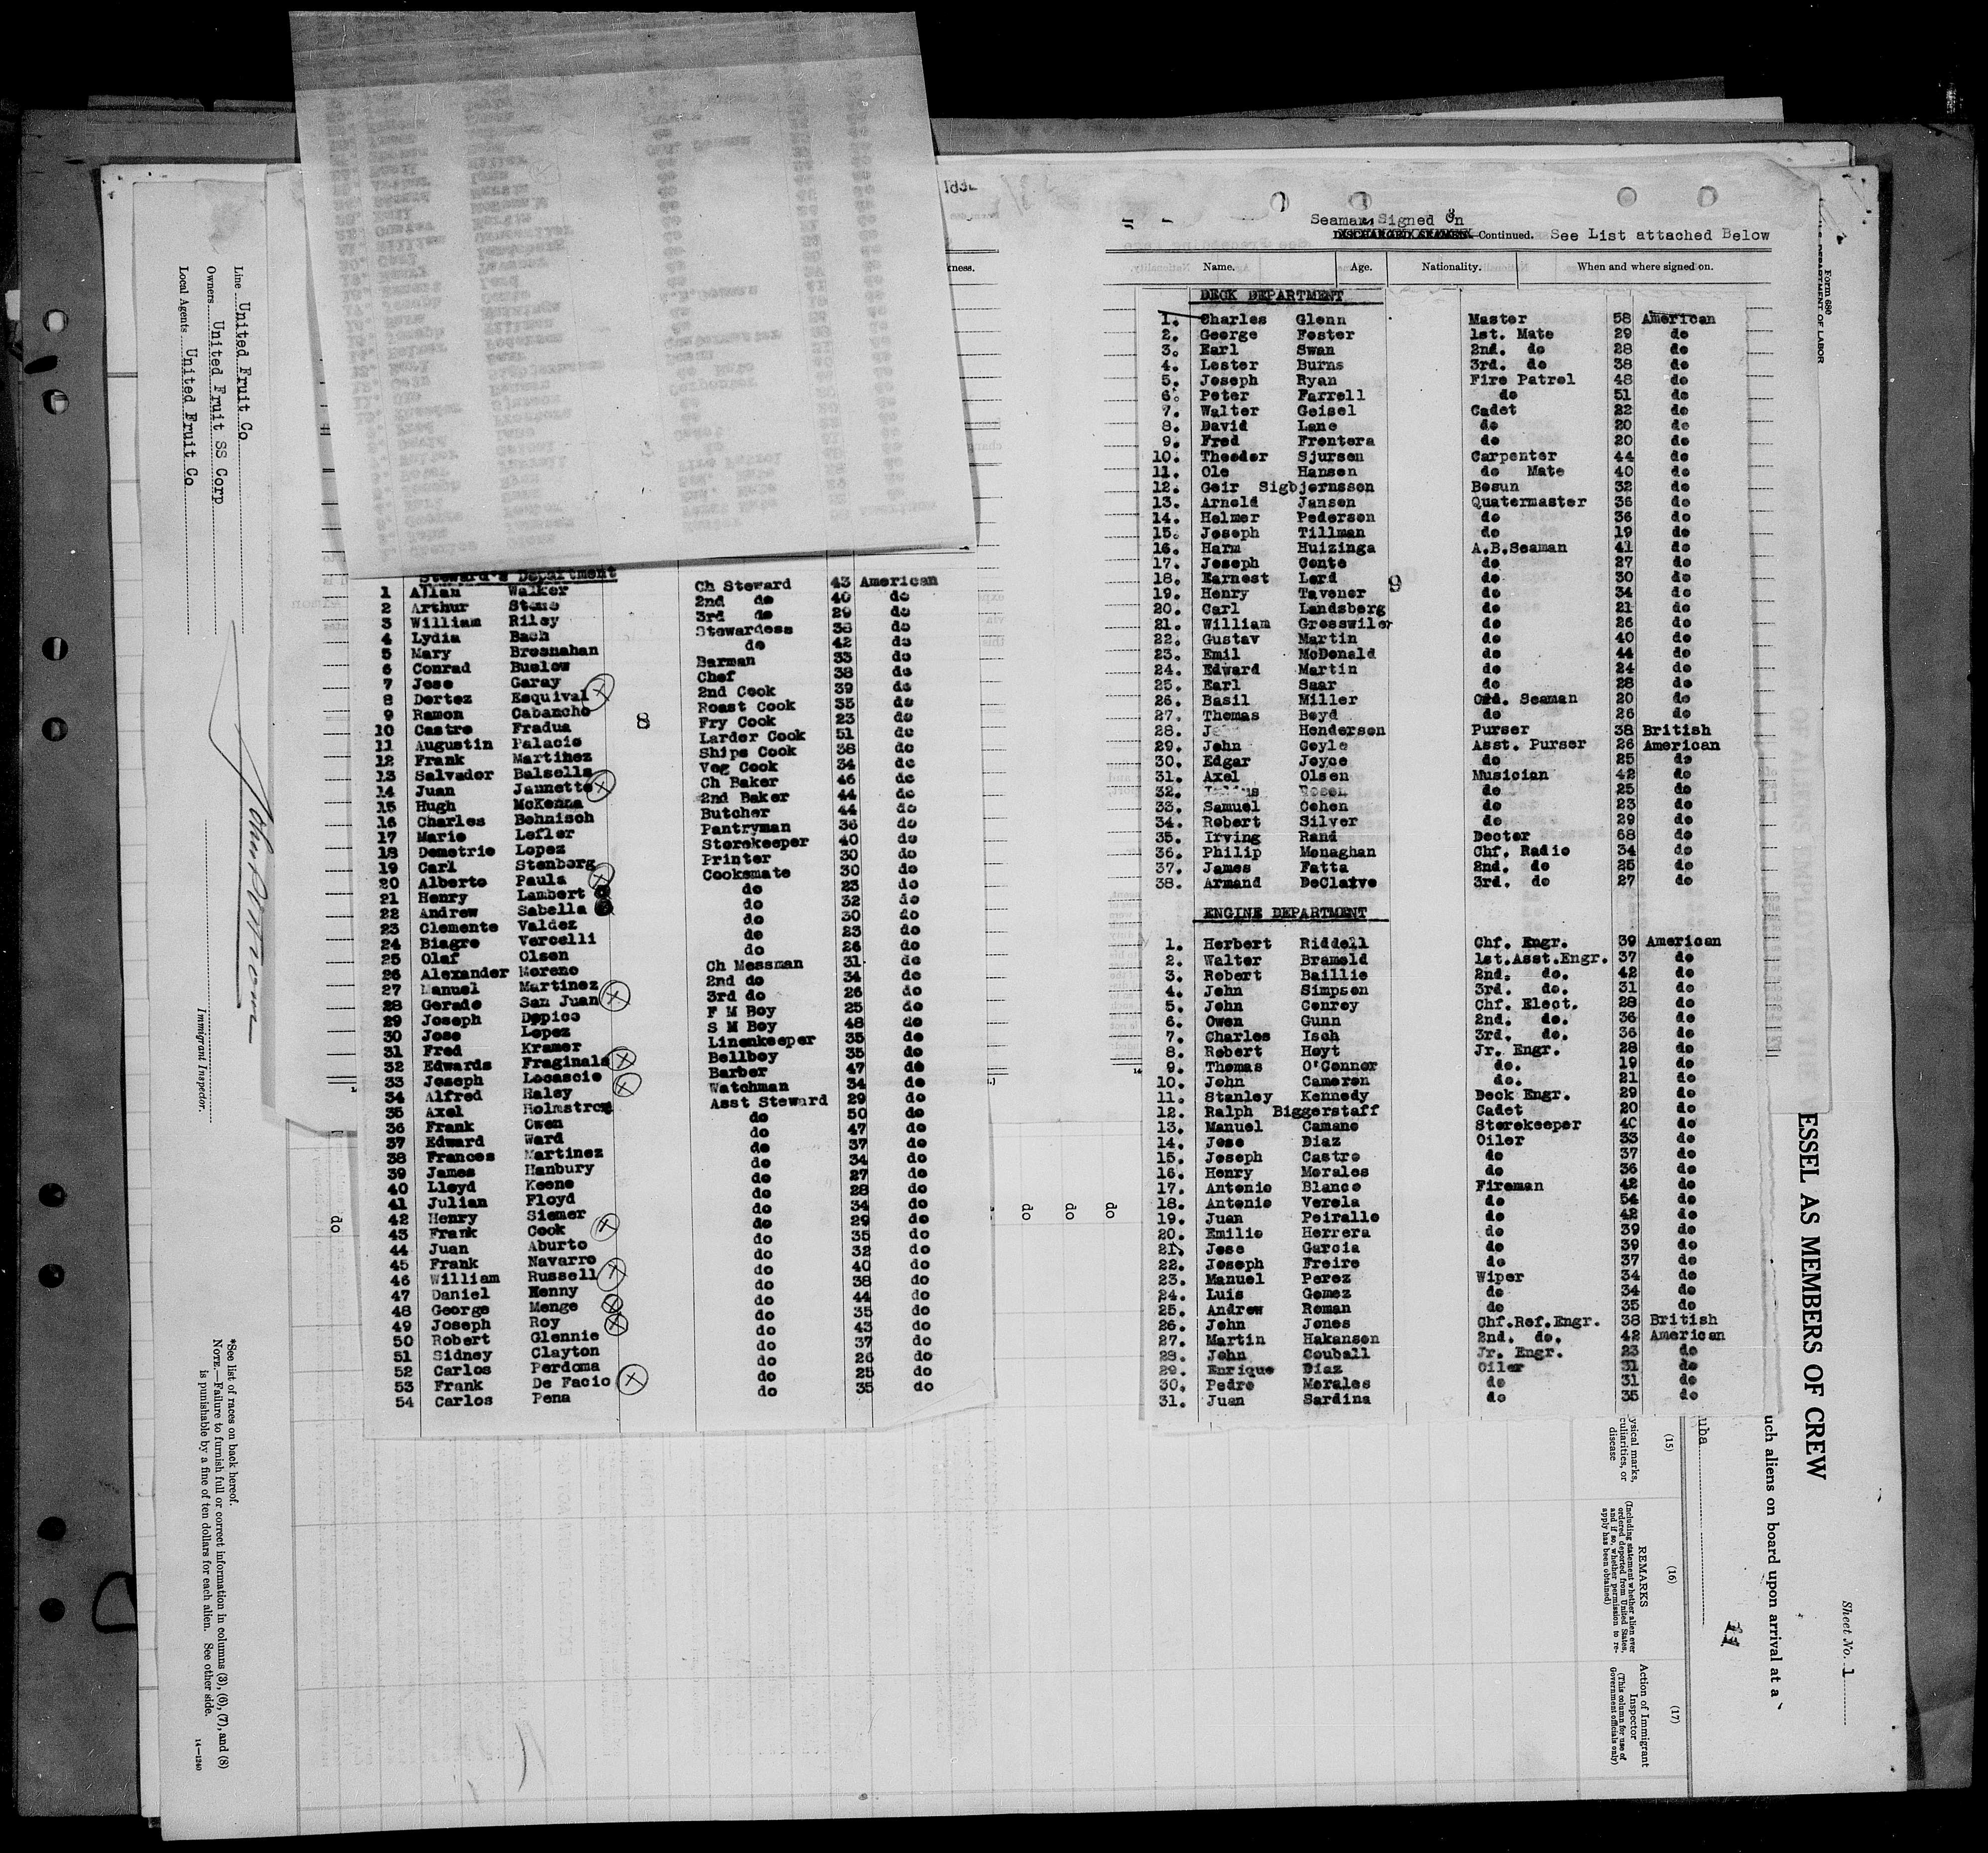 Line United Fruit Co
Owners United Fruit SS Corp
Local Agents United Fruit Co
Immigrant Inspector.
*See list of races on back hereof.
NOTE.—Failure to furnish full or correct information in columns (3), (6), (7), and (8)
is punishable by a fine of ten dollars for each alien. See other side.
14—1240
do
Steward's Department
1 Allan Walker Ch Steward 43 American
2 Arthur Stone 2nd do 40 do
3 William Riley 3rd do 29 do
4 Lydia Bach Stewardess 38 do
5 Mary Bresnahan do 42 do
6 Conrad Buelow Barman 33 do
7 Jose Garay Chef 38 do
8 Dortez Esquival 2nd Cook 39 do
9 Ramon Cabancho Roast Cook 35 do
10 Castro Fradua 8 Fry Cook 23 do
11 Augustin Palacio Larder Cook 51 do
12 Frank Martinez Ships Cook 38 do
13 Salvador Balsells Veg Cook 34 do
14 Juan Jannette Ch Baker 46 do
15 Hugh McKenna 2nd Baker 44 do
16 Charles Behnisch Butcher 44 do
17 Marie Lefler Pantryman 36 do
18 Demetrio Lopez Storekeeper 40 do
19 Carl Stenborg Printer 30 do
20 Alberto Paula Cooksmate 30 do
21 Henry Lambert do 23 do
22 Andrew Sabella do 32 do
23 Clemente Valdez do 30 do
24 Biagre Vercelli do 23 do
25 Olaf Olsen do 26 do
26 Alexander Moreno Ch Messman 31 do
27 Manuel Martinez 2nd do 34 do
28 Gerado San Juan 3rd do 26 do
29 Joseph Dopico F M Boy 25 do
30 Jose Lopez S M Boy 48 do
31 Fred Kramer Linenkeeper 35 do
32 Edwards Fraginals Bellboy 35 do
33 Joseph Locascio Barber 47 do
34 Alfred Haley Watchman 34 do
35 Axel Holmstrom Asst Steward 29 do
36 Frank Owen do 50 do
37 Edward Ward do 47 do
38 Frances Martinez do 37 do
39 James Hanbury do 34 do
40 Lloyd Keene do 27 do
41 Julian Floyd do 28 do
42 Henry Siemer do 34 do
43 Frank Cook do 29 do
44 Juan Aburto do 35 do
45 Frank Navarro do 32 do
46 William Russell do 40 do
47 Daniel Kenny do 38 do
48 George Menge do 44 do
49 Joseph Roy do 35 do
50 Robert Glennie do 43 do
51 Sidney Clayton do 37 do
52 Carlos Perdoma do 26 do
53 Frank De Facio do 25 do
54 Carlos Pena do 35 do
do
do
do
Seaman Signed On
DISCHARGED SEAMEN—Continued. See List attached Below
Name. Age. Nationality. When and where signed on.
DECK DEPARTMENT
1. Charles Glenn Master 58 American
2. George Foster 1st. Mate 29 do
3. Earl Swan 2nd. do 28 do
4. Lester Burns 3rd. do 38 do
5. Joseph Ryan Fire Patrol 48 do
6. Peter Farrell do 51 do
7. Walter Geisel Cadet 22 do
8. David Lane do 20 do
9. Fred Frontera do 20 do
10. Theodor Sjursen Carpenter 44 do
11. Ole Hansen do Mate 40 do
12. Geir Sigbjornsson Bosun 32 do
13. Arnold Jansen Quatermaster 36 do
14. Helmer Pedersen do 36 do
15. Joseph Tillman do 19 do
16. Harm Huizinga A.B.Seaman 41 do
17. Joseph Conte do 27 do
18. Earnest Lord 9 do 30 do
19. Henry Tavener do 34 do
20. Carl Landsberg do 21 do
21. William Grosswiler do 26 do
22. Gustav Martin do 40 do
23. Emil McDonald do 44 do
24. Edward Martin do 24 do
25. Earl Saar do 28 do
26. Basil Miller Ord. Seaman 20 do
27. Thomas Boyd do 26 do
28. Henderson Purser 38 British
29. John Coyle Asst. Purser 26 American
30. Edgar Joyce do 25 do
31. Axel Olsen Musician 42 do
32. Rosen do 25 do
33. Samuel Cohen do 23 do
34. Robert Silver do 29 do
35. Irving Rand Doctor 68 do
36. Philip Monaghan Chf. Radio 34 do
37. James Fatta 2nd. do 25 do
38. Armand DeClarve 3rd. do 27 do
ENGINE DEPARTMENT
1. Herbert Riddell Chf. Engr. 39 American
2. Walter Brameld 1st.Asst.Engr. 37 do
3. Robert Baillie 2nd. do. 42 do
4. John Simpson 3rd. do. 31 do
5. John Conrey Chf. Elect. 28 do
6. Owen Gunn 2nd. do. 36 do
7. Charles Isch 3rd. do. 36 do
8. Robert Hoyt Jr. Engr. 28 do
9. Thomas O'Connor do. 19 do
10. John Cameron do. 21 do
11. Stanley Kennedy Deck Engr. 29 do
12. Ralph Biggerstaff Cadet 20 do
13. Manuel Camano Storekeeper 40 do
14. Jose Diaz Oiler 33 do
15. Joseph Castro do 37 do
16. Henry Morales do 36 do
17. Antonio Blanco Fireman 42 do
18. Antonio Verela do 54 do
19. Juan Peirallo do 42 do
20. Emilio Herrera do 39 do
21. Jose Garcia do 39 do
22. Joseph Freire do 37 do
23. Manuel Perez Wiper 34 do
24. Luis Gomez do 34 do
25. Andrew Roman do 35 do
26. John Jones Chf.Ref.Engr. 38 British
27. Martin Hakanson 2nd. do. 42 American
28. John Couball Jr. Engr. 23 do
29. Enrique Diaz Oiler 31 do
30. Pedro Morales do 31 do
31. Juan Sardina do 35 do
Form 680
DEPARTMENT OF LABOR
ESSEL AS MEMBERS OF CREW
uch aliens on board upon arrival at a
Sheet No. 1
uba
11
(15)
ysical marks,
culiarities, or
disease
(16)
REMARKS
(Including statement whether alien ever
ordered deported from United States,
and if so, whether permission to re-
apply has been obtained)
(17)
Action of Immigrant
Inspector
(This column for use of
Government officials only)